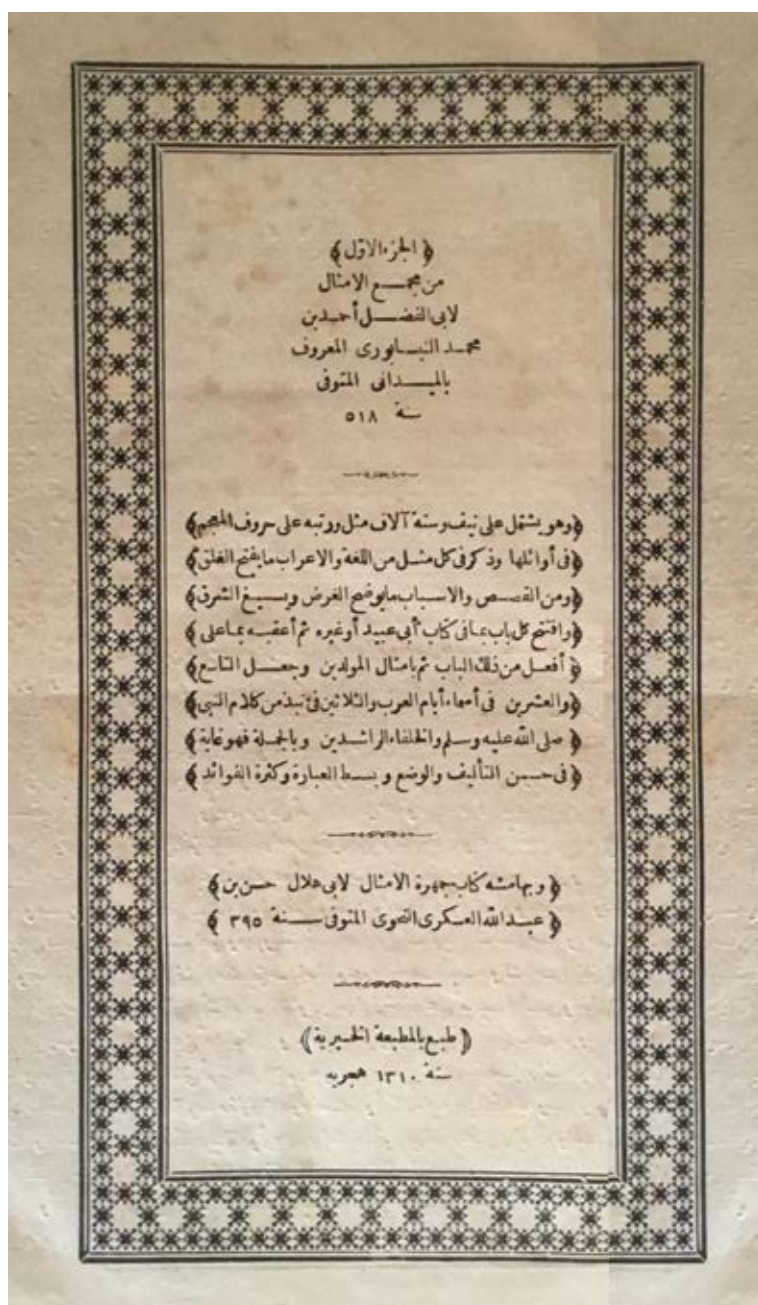 ﴿ الجزء الاوّل ﴾
من مجمع الامثال
لابى الفضل أحمد بن
محمد النيسابورى المعروف
بالميدانى المتوفى
سنة ٥١٨
﴿ وهو يشتمل على نيف وستة آلاف مثل ورتبه على حروف المعجم ﴾
﴿ فى أوائلها وذكر فى كل مثل من اللغة والاعراب ما يفتح الغلق ﴾
﴿ ومن القصص والاسباب ما يوضح الغرض ويسيغ الشرق ﴾
﴿ وافتتح كل باب بما فى كتاب أبى عبيد أو غيره ثم أعقبه بما على ﴾
﴿ أفعل من ذلك الباب ثم بامثال المولدين وجعل التاسع ﴾
﴿ والعشرين فى أسماء أيام العرب والثلاثين فى نبذ من كلام النبى ﴾
﴿ صلى الله عليه وسلم والخلفاء الراشدين وبالجملة فهو غاية ﴾
﴿ فى حسن التأليف والوضع وبسط العبارة وكثرة الفوائد ﴾
﴿ وبهامشه كتاب جمهرة الامثال لابى هلال حسن بن ﴾
﴿ عبد الله العسكرى النحوى المتوفى سنة ٣٩٥ ﴾
﴿ طبع بالمطبعة الخيرية ﴾
سنة ١٣١٠ هجريه